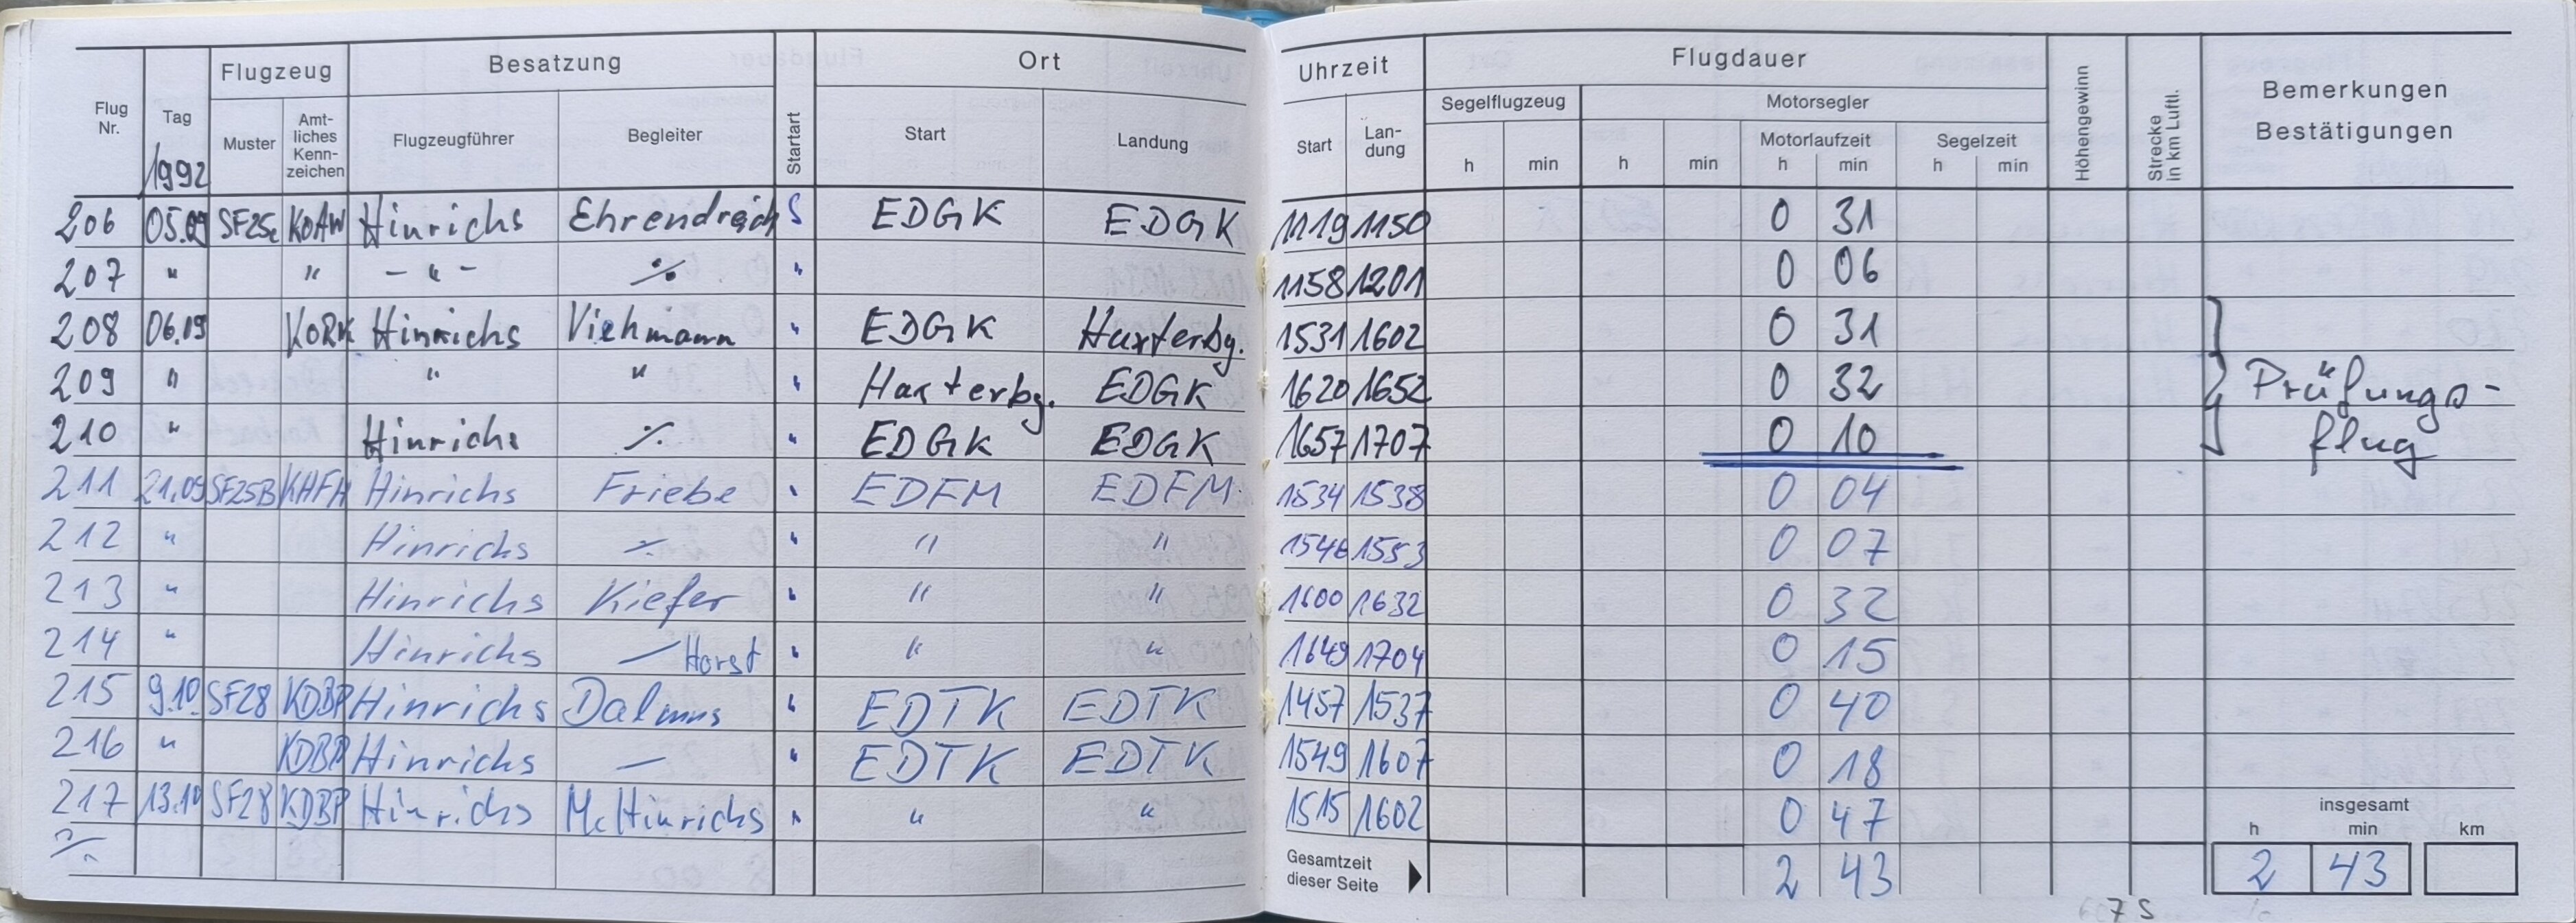 Flug Nr.
Tag
1992
Flugzeug
Muster
Amt-
liches
Kenn-
zeichen
Besatzung
Flugzeugführer
Begleiter
Startart
Ort
Start
Landung
Uhrzeit
Start
Lan-
dung
Flugdauer
Segelflugzeug
h min
Motorsegler
h min
Motorlaufzeit
h min
Segelzeit
h min
Höhengewinn
Strecke
in km Luftl.
Bemerkungen
Bestätigungen
206 05.09 SF25c KOAW Hinrichs Ehrendreich S EDGK EDGK 1119 1150 0 31
207 " " - " - ٪ " 1158 1201 0 06
208 06.09 KORK Hinrichs Viehmann " EDGK Haxterbg. 1531 1602 0 31
209 " " " " Haxterbg. EDGK 1620 1652 0 32 Prüfungs-
210 " Hinrichs ٪ " EDGK EDGK 1657 1707 0 10 flug
211 21.09 SF25B KHFH Hinrichs Friebe " EDFM EDFM 1534 1538 0 04
212 " Hinrichs ٪ " " " 1546 1553 0 07
213 " Hinrichs Kiefer " " " 1600 1632 0 32
214 " Hinrichs — " " " 1649 1704 0 15
215 9.10. SF28 KDBP Hinrichs Horst Dalmus " EDTK EDTK 1457 1537 0 40
216 " KDBP Hinrichs — " EDTK EDTK 1549 1607 0 18
217 13.10 SF28 KDBP Hinrichs M. Hinrichs " " " 1515 1602 0 47
٪
Gesamtzeit
dieser Seite
2 43
insgesamt
h min km
2 43
7 S